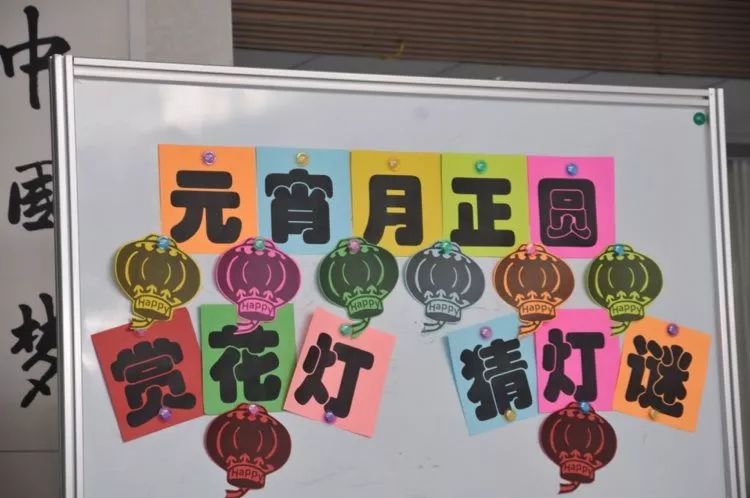 中国梦
元宵月正圆
Happy Happy Happy Happy Happy Happy
赏花灯 猜灯谜
Happy Happy